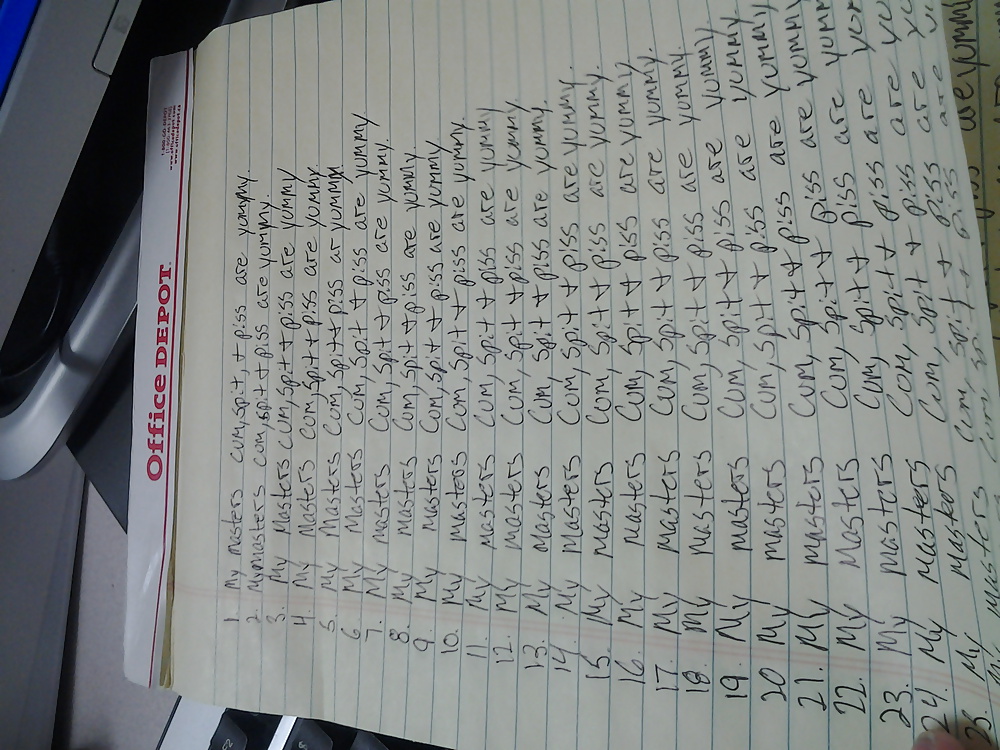 Office DEPOT
1. My Masters cum, spit, + piss are yummy.
2. My masters cum, spit + piss are yummy.
3. My Masters cum, spit + piss are yummy
4. My Masters cum, spit + piss are yummy.
5. My Masters cum, spit + piss ar yummy
6. My Masters cum, spit + piss are yummy
7. My masters cum, spit + piss are yummy.
8. My Masters cum, spit + piss are yummy.
9. My Masters cum, spit + piss are yummy
10. My masters cum, spit + piss are yummy.
11. My masters cum, spit + piss are yummy
12. My Masters cum, spit + piss are yummy
13. My Masters cum, spit + piss are yummy.
14. My Masters cum, spit + piss are yummy.
15. My masters cum, spit + piss are yummy.
16. My masters cum, spit + piss are yummy.
17. My Masters cum, spit + piss are yummy.
18. My Masters cum, spit + piss are yummy.
19. My masters cum, spit + piss are yummy.
20 My masters cum, spit + piss are yummy
21. My masters cum, spit + piss are yummy
22. My Masters cum, spit + piss are yummy
23. My masters cum, spit + piss are
24. My Masters cum, spit + piss are
25. My Masters cum, spit + piss are
My masters cum, spit + piss are yummy